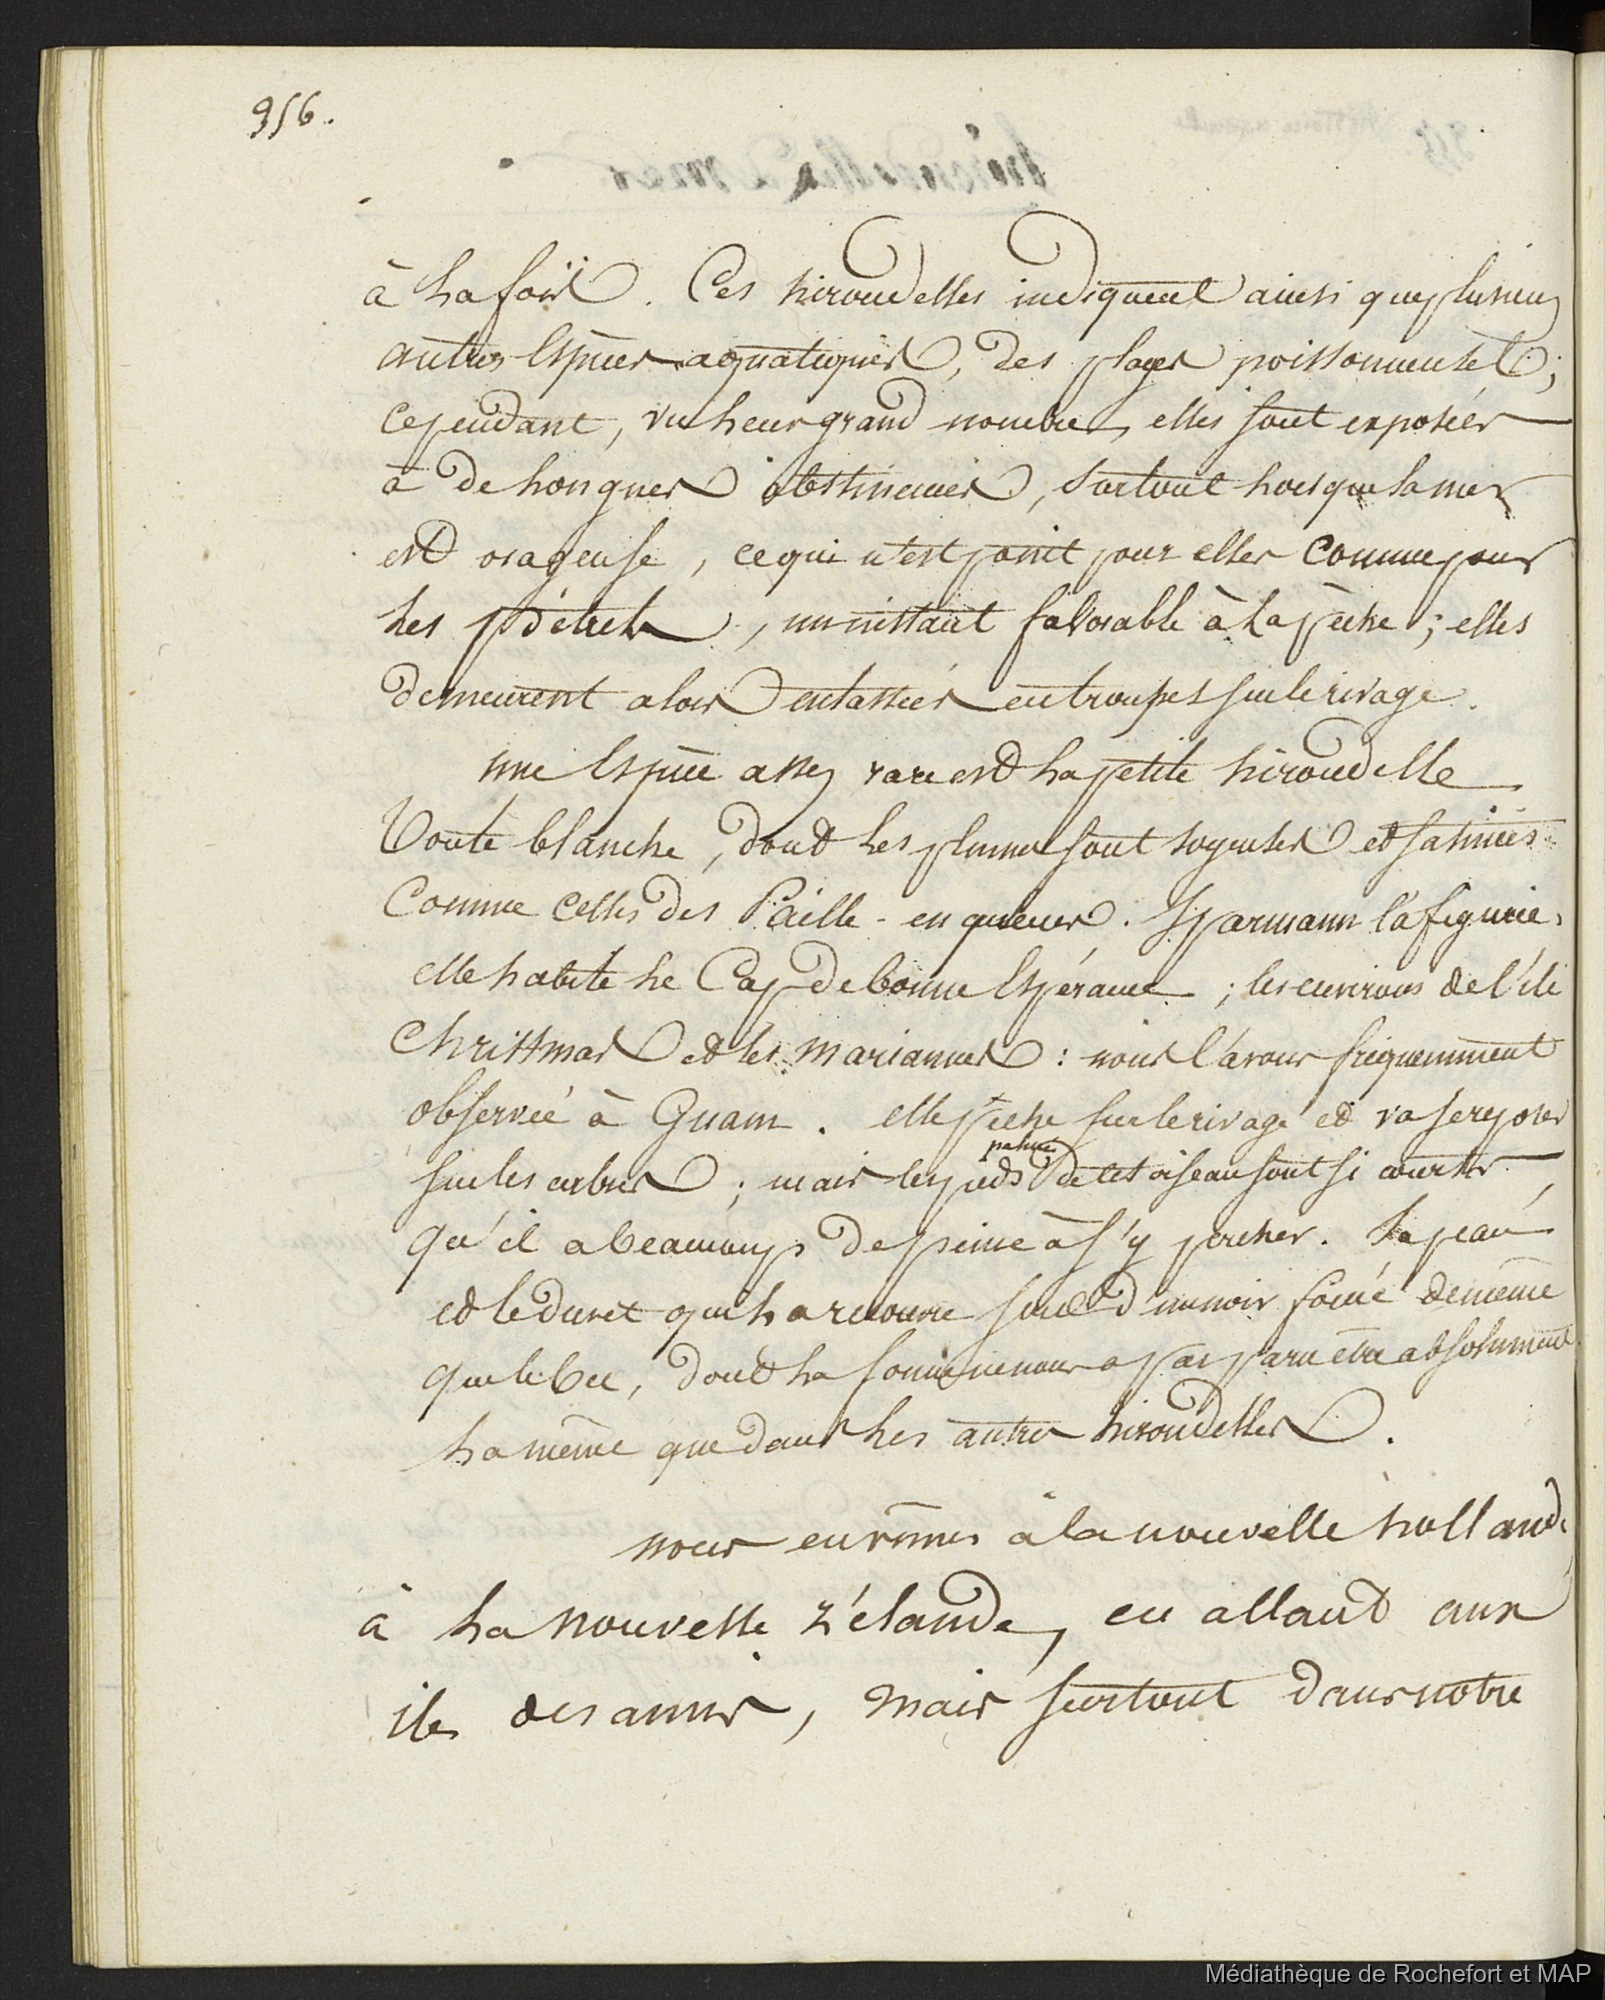 956.
à la fois. Ces hirondelles indiquent ainsi que plusieurs
autres Espèces aquatiques, des plages poissonneuses;
cependant, vu leur grand nombre, elles sont exposées
à de longues abstinences, surtout lorsque la mer
est orageuse, ce qui n'est point pour elles comme pour
les pétrels, un instant favorable à la pêche; elles
demeurent alors entassées en troupes sur le rivage.
une Espèce assez rare est la petite hirondelle
toute blanche, dont les plumes sont soyeuses et satinées
Comme celles des Paille-en queues. Sparmann l'a figurée.
elle habite le Cap de bonne Espérance; les environs de l'île
Christmas et les mariannes: nous l'avons fréquemment
observée à Guam. elle pêche sur le rivage et va se reposer
palmés
sur les arbres; mais les pieds de cet oiseau sont si courts,
qu'il a beaucoup de peine à s'y percher. Sa peau
et le duvet qui la recouvre sont d'un noir foncé de même
que le bec, dont la forme ne nous a pas paru être absolument
la même que dans les autres hirondelles.
nous en vîmes à la nouvelle hollande
à la nouvelle zélande, en allant aux
iles des amis, mais surtout dans notre
Médiathèque de Rochefort et MAP